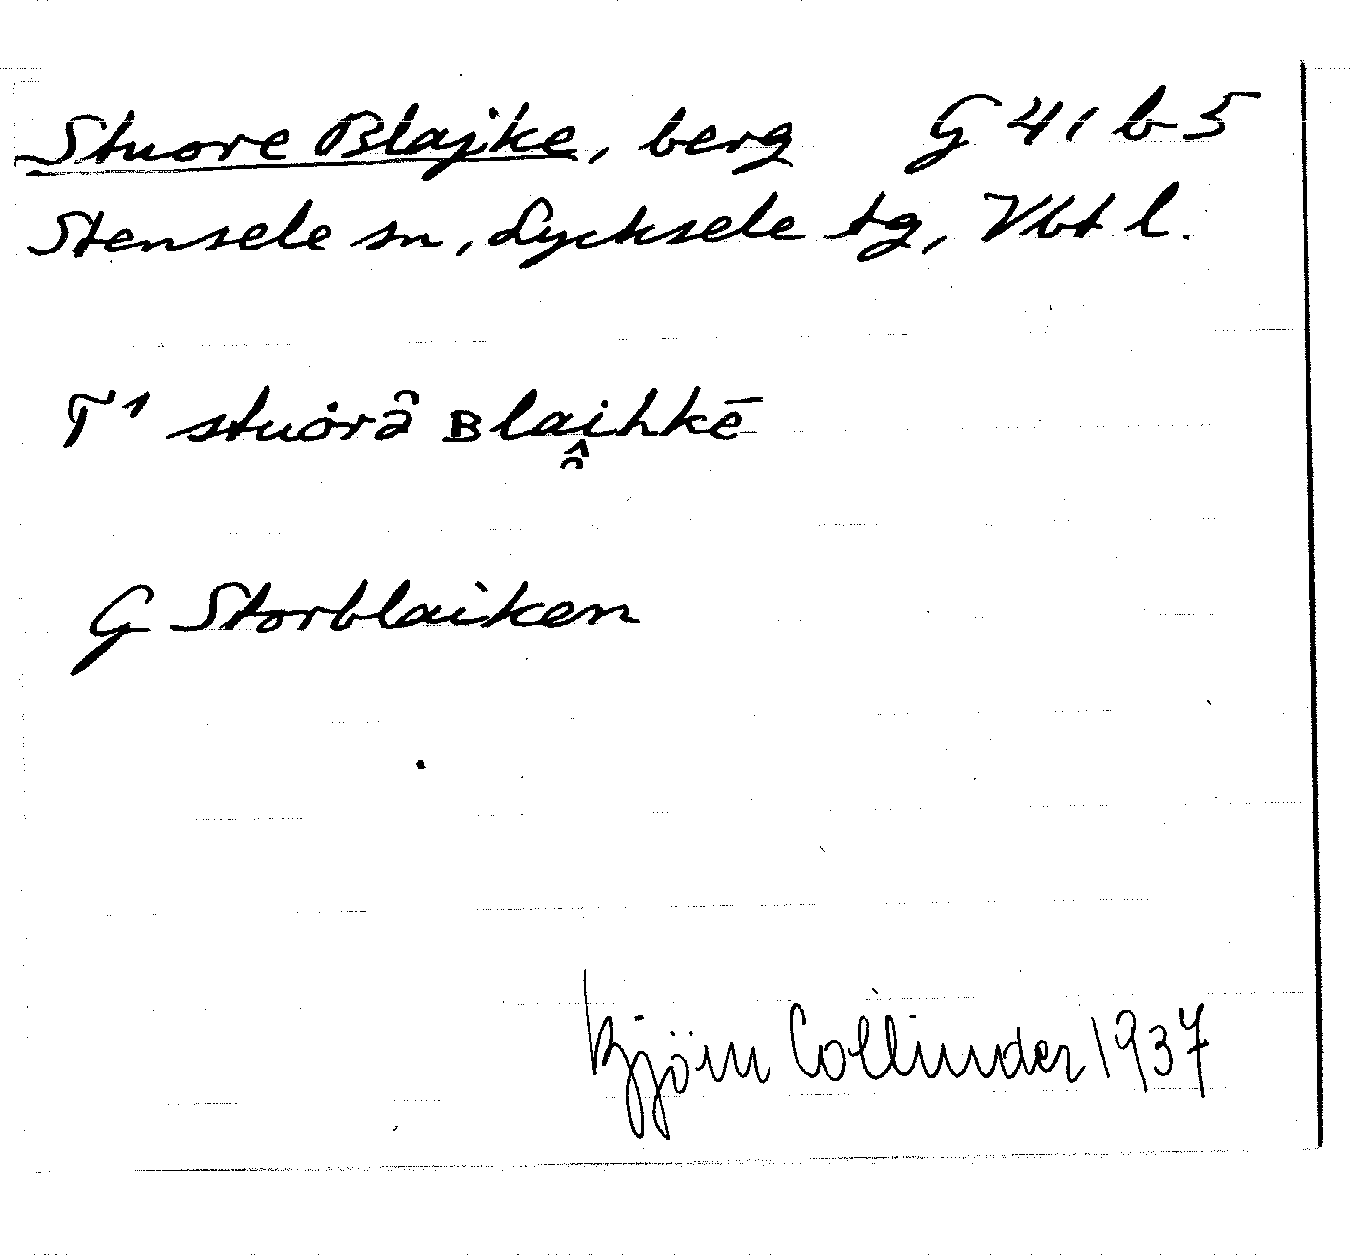 Stuore Blajke, berg G 41 b 5
Stensele sn, Lycksele tg, Vbt l.
T¹ stuȯrâ ʙlai̭hkē
G Storblaiken
Björn Collinder 1937